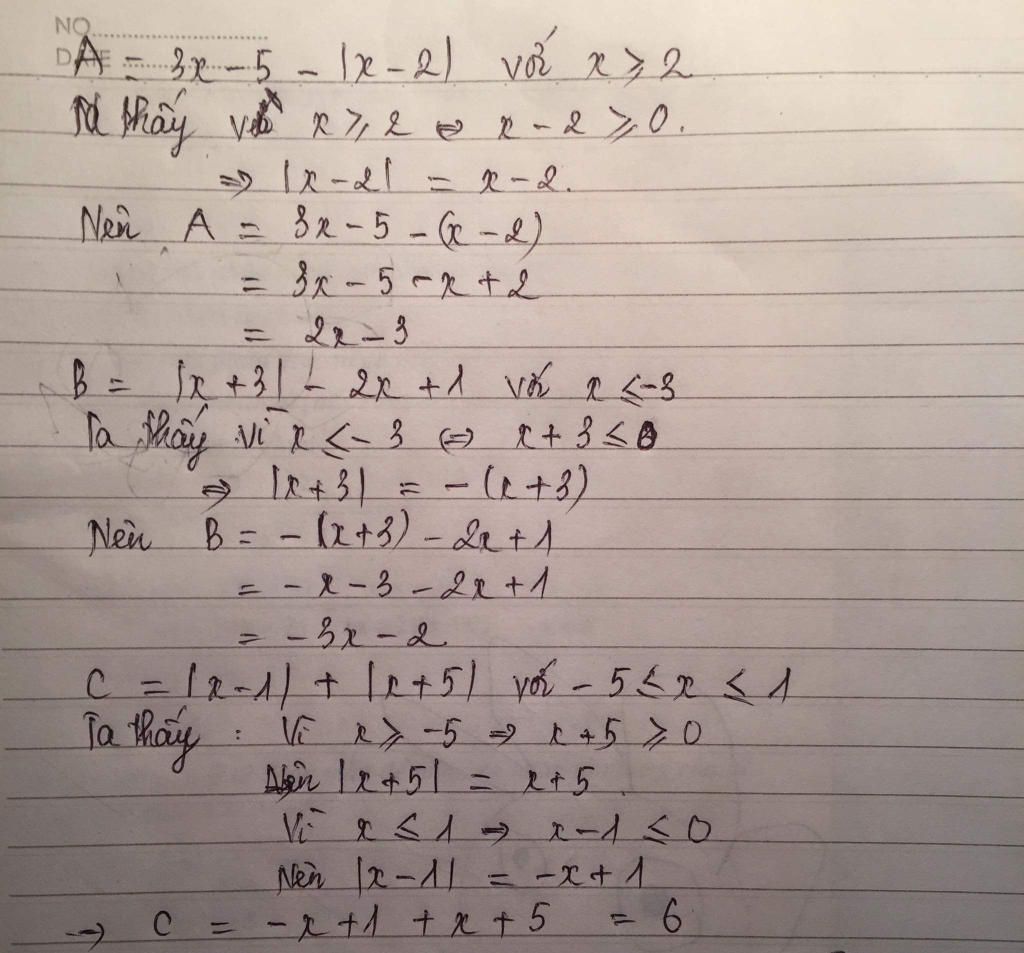 NO
DATE
A = 3x - 5 - |x - 2| với x ≥ 2
Ta thấy với x ≥ 2 ⇔ x - 2 ≥ 0.
⇒ |x - 2| = x - 2.
Nên A = 3x - 5 - (x - 2)
= 3x - 5 - x + 2
= 2x - 3
B = |x + 3| - 2x + 1 với x ≤ -3
Ta thấy vì x ≤ - 3 ⇔ x + 3 ≤ 0
⇒ |x + 3| = - (x + 3)
Nên B = - (x+3) - 2x + 1
= - x - 3 - 2x + 1
= - 3x - 2
C = |x - 1| + |x + 5| với - 5 ≤ x ≤ 1
Ta thấy : Vì x ≥ -5 ⇒ x + 5 ≥ 0
Nên |x + 5| = x + 5.
Vì x ≤ 1 ⇒ x - 1 ≤ 0
Nên |x - 1| = -x + 1
→ C = - x + 1 + x + 5 = 6